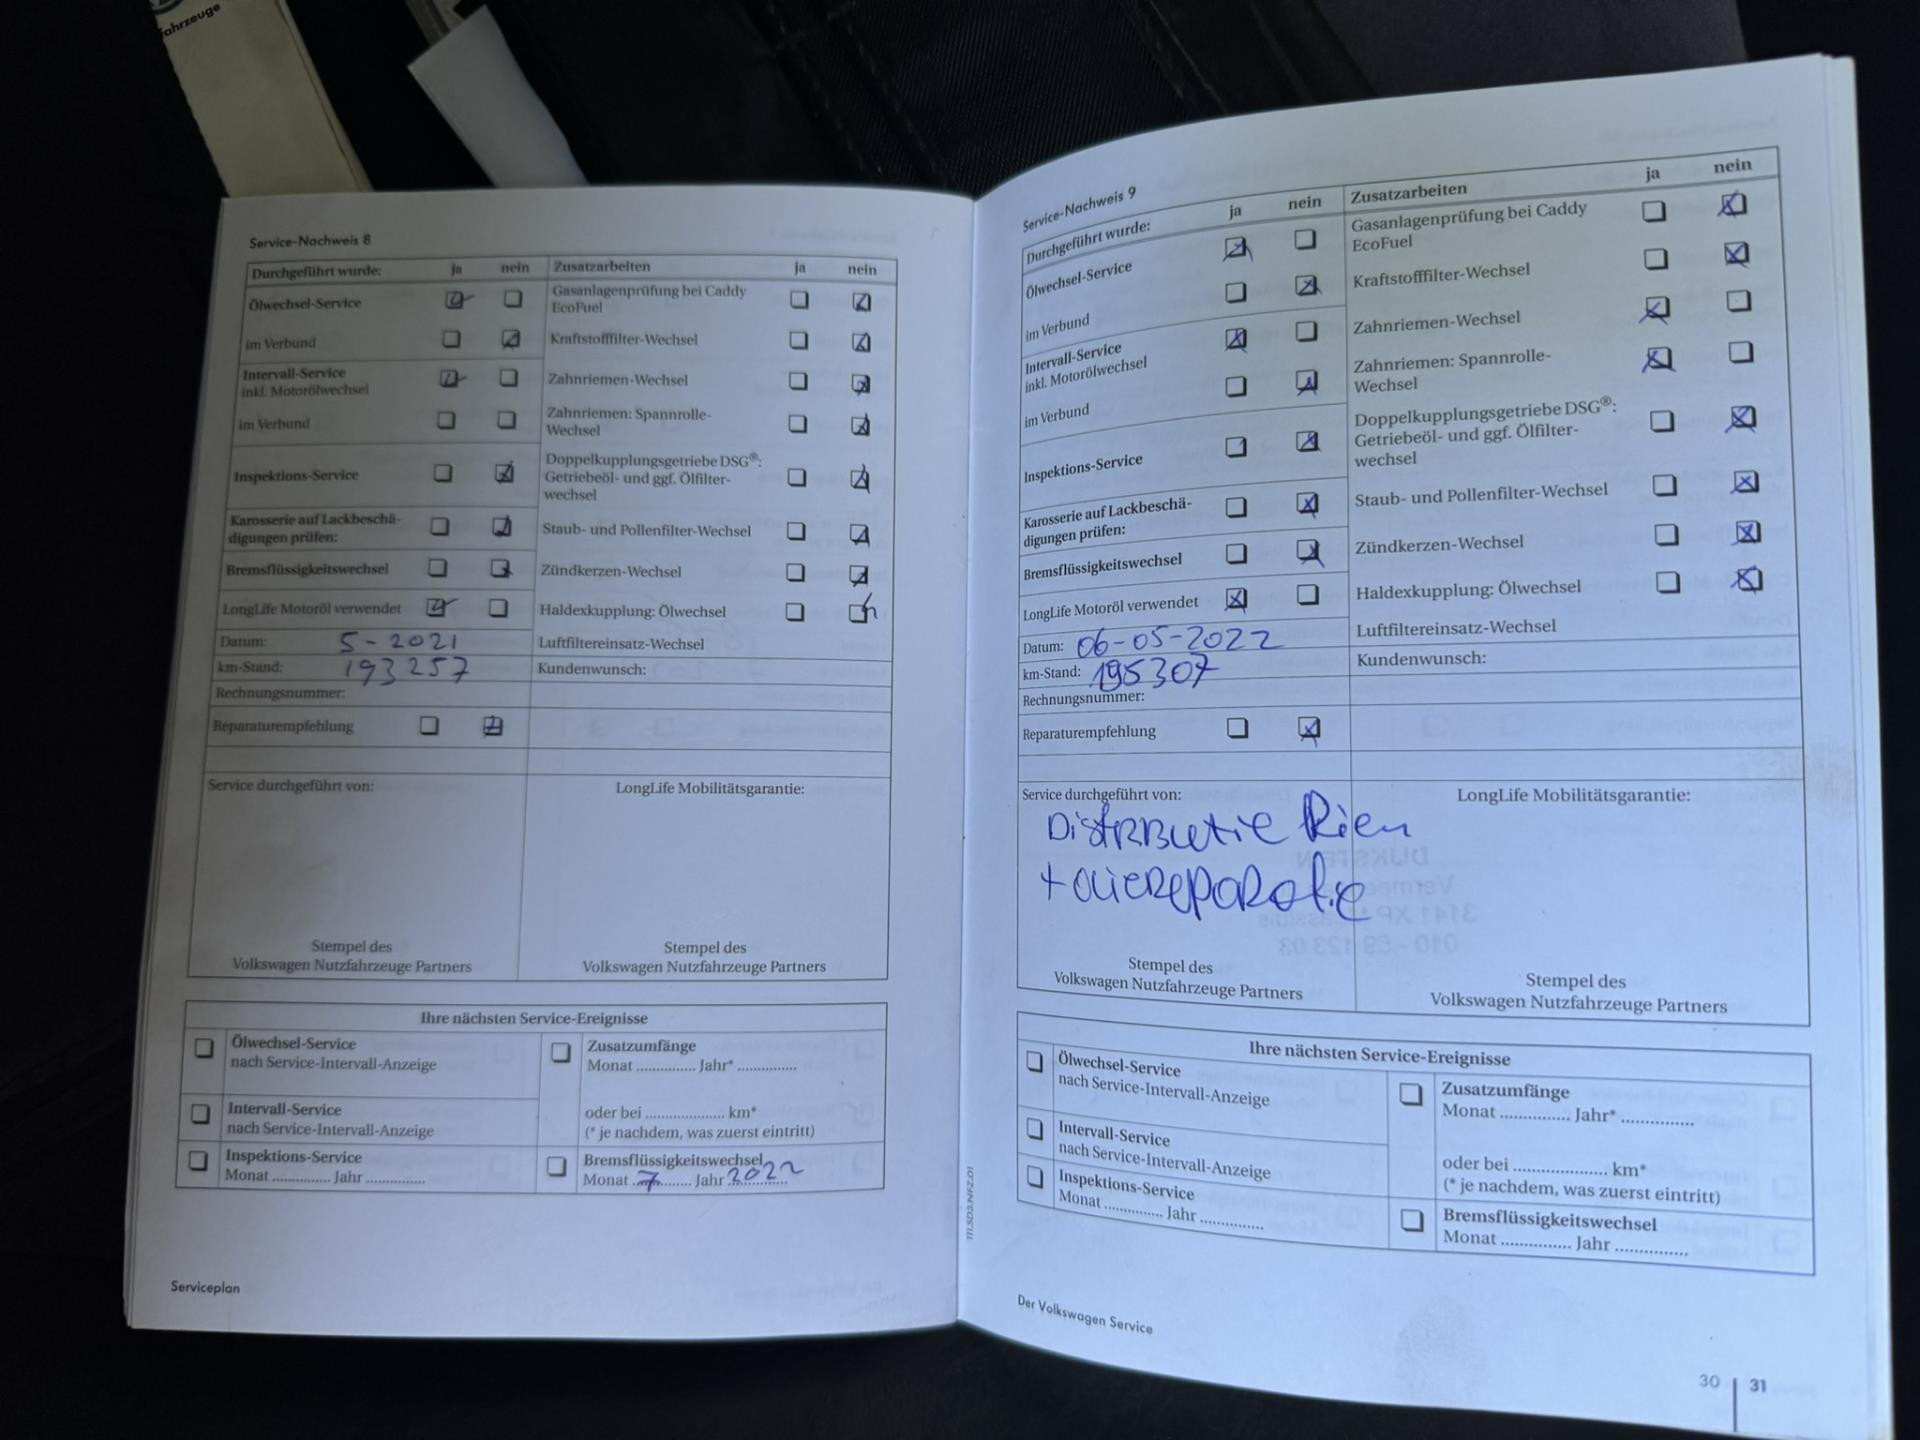 ahrzeuge
Service-Nachweis 8
Durchgeführt wurde: ja nein
Ölwechsel-Service
im Verbund
Intervall-Service
inkl. Motorölwechsel
im Verbund
Inspektions-Service
Karosserie auf Lackbeschä-
digungen prüfen:
Bremsflüssigkeitswechsel
LongLife Motoröl verwendet
Datum: 5-2021
km-Stand: 193257
Rechnungsnummer:
Reparaturempfehlung
Zusatzarbeiten ja nein
Gasanlagenprüfung bei Caddy
EcoFuel
Kraftstofffilter-Wechsel
Zahnriemen-Wechsel
Zahnriemen: Spannrolle-
Wechsel
Doppelkupplungsgetriebe DSG®:
Getriebeöl- und ggf. Ölfilter-
wechsel
Staub- und Pollenfilter-Wechsel
Zündkerzen-Wechsel
Haldexkupplung: Ölwechsel
Luftfiltereinsatz-Wechsel
Kundenwunsch:
Service durchgeführt von:
Stempel des
Volkswagen Nutzfahrzeuge Partners
LongLife Mobilitätsgarantie:
Stempel des
Volkswagen Nutzfahrzeuge Partners
Ihre nächsten Service-Ereignisse
Ölwechsel-Service
nach Service-Intervall-Anzeige
Intervall-Service
nach Service-Intervall-Anzeige
Inspektions-Service
Monat .............. Jahr ..............
Zusatzumfänge
Monat .............. Jahr* ..............
oder bei .................... km*
(* je nachdem, was zuerst eintritt)
Bremsflüssigkeitswechsel
Monat ..7........ Jahr 2022
Serviceplan
Service-Nachweis 9
Durchgeführt wurde: ja nein
Ölwechsel-Service
im Verbund
Intervall-Service
inkl. Motorölwechsel
im Verbund
Inspektions-Service
Karosserie auf Lackbeschä-
digungen prüfen:
Bremsflüssigkeitswechsel
LongLife Motoröl verwendet
Datum: 06-05-2022
km-Stand: 195307
Rechnungsnummer:
Reparaturempfehlung
Zusatzarbeiten ja nein
Gasanlagenprüfung bei Caddy
EcoFuel
Kraftstofffilter-Wechsel
Zahnriemen-Wechsel
Zahnriemen: Spannrolle-
Wechsel
Doppelkupplungsgetriebe DSG®:
Getriebeöl- und ggf. Ölfilter-
wechsel
Staub- und Pollenfilter-Wechsel
Zündkerzen-Wechsel
Haldexkupplung: Ölwechsel
Luftfiltereinsatz-Wechsel
Kundenwunsch:
Service durchgeführt von:
Distributie Riem
+ olieReparatie
Stempel des
Volkswagen Nutzfahrzeuge Partners
LongLife Mobilitätsgarantie:
Stempel des
Volkswagen Nutzfahrzeuge Partners
Ihre nächsten Service-Ereignisse
Ölwechsel-Service
nach Service-Intervall-Anzeige
Intervall-Service
nach Service-Intervall-Anzeige
Inspektions-Service
Monat .............. Jahr ..............
Zusatzumfänge
Monat .............. Jahr* ..............
oder bei .................... km*
(* je nachdem, was zuerst eintritt)
Bremsflüssigkeitswechsel
Monat .............. Jahr ..............
111.5D3.NFZ.01
Der Volkswagen Service
30 31